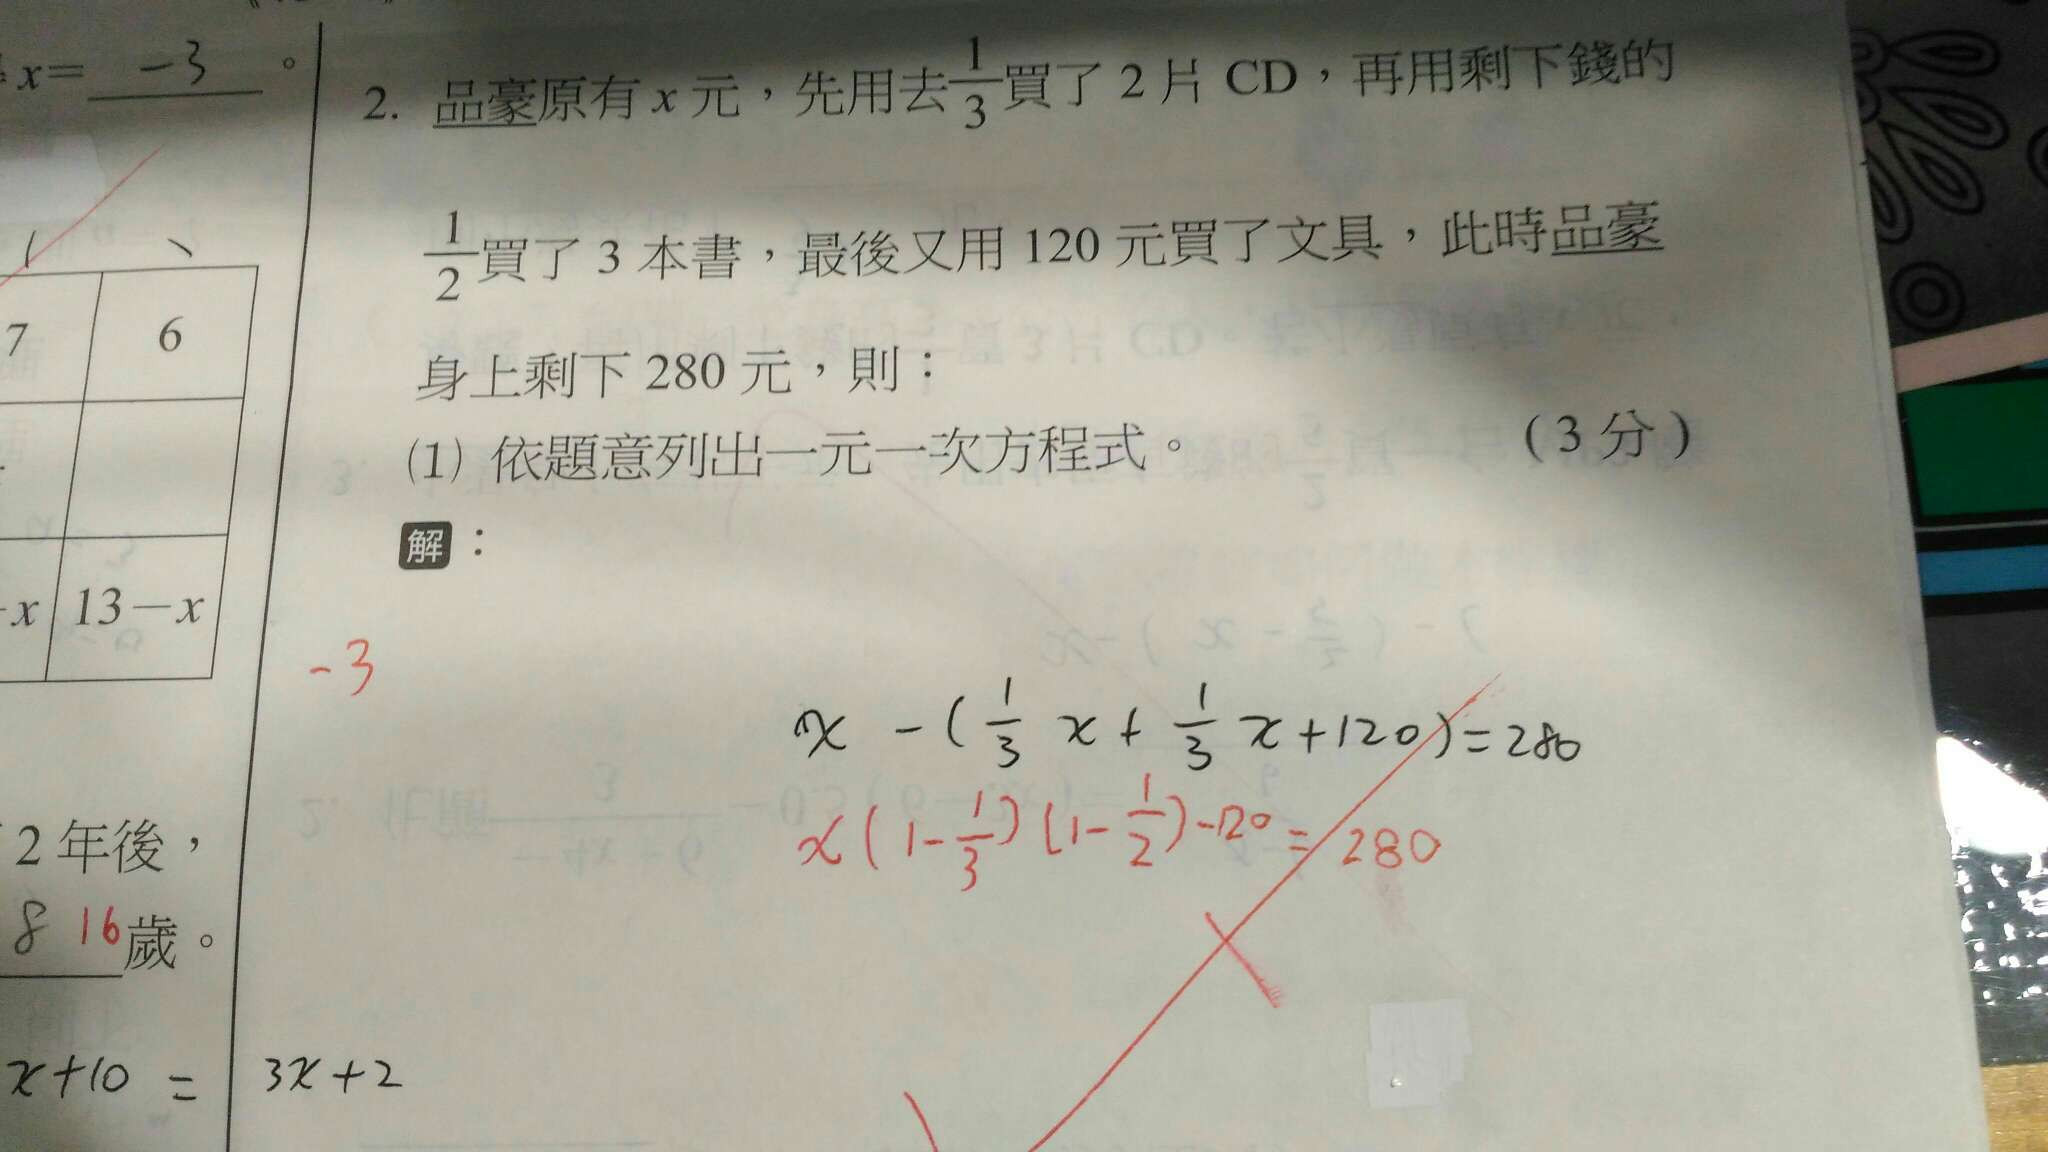 x= -3 。
7 6
x 13－x
2 年後，
8 16歲。
x+10 = 3x+2
2. 品豪原有 x 元，先用去1/3買了 2 片 CD，再用剩下錢的
1/2買了 3 本書，最後又用 120 元買了文具，此時品豪
身上剩下 280 元，則：
(1) 依題意列出一元一次方程式。 (3 分)
解：
-3
x -(1/3 x+1/3 x+120)=280
x(1-1/3)(1-1/2)-120=280